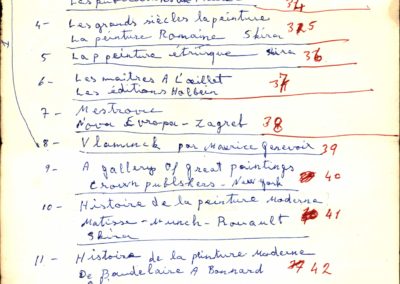 34
4- Les grands siècles la peinture
La peinture Romaine Skira 325
5 La p peinture étrusque - Skira 36
6- Les maîtres A L'œillet
Les éditions Holbein 37
7- Mestrovic
Nova Evropa - Zagreb 38
8- Vlaminck par Maurice Genevoix 39
9- A gallery Of great paintings
Crown publishers - New York 40
10- Histoire de la peinture Moderne
Matisse - Munch - Rouault 41
Skira
11- Histoire de la peinture Moderne
De Baudelaire A Bonnard 42